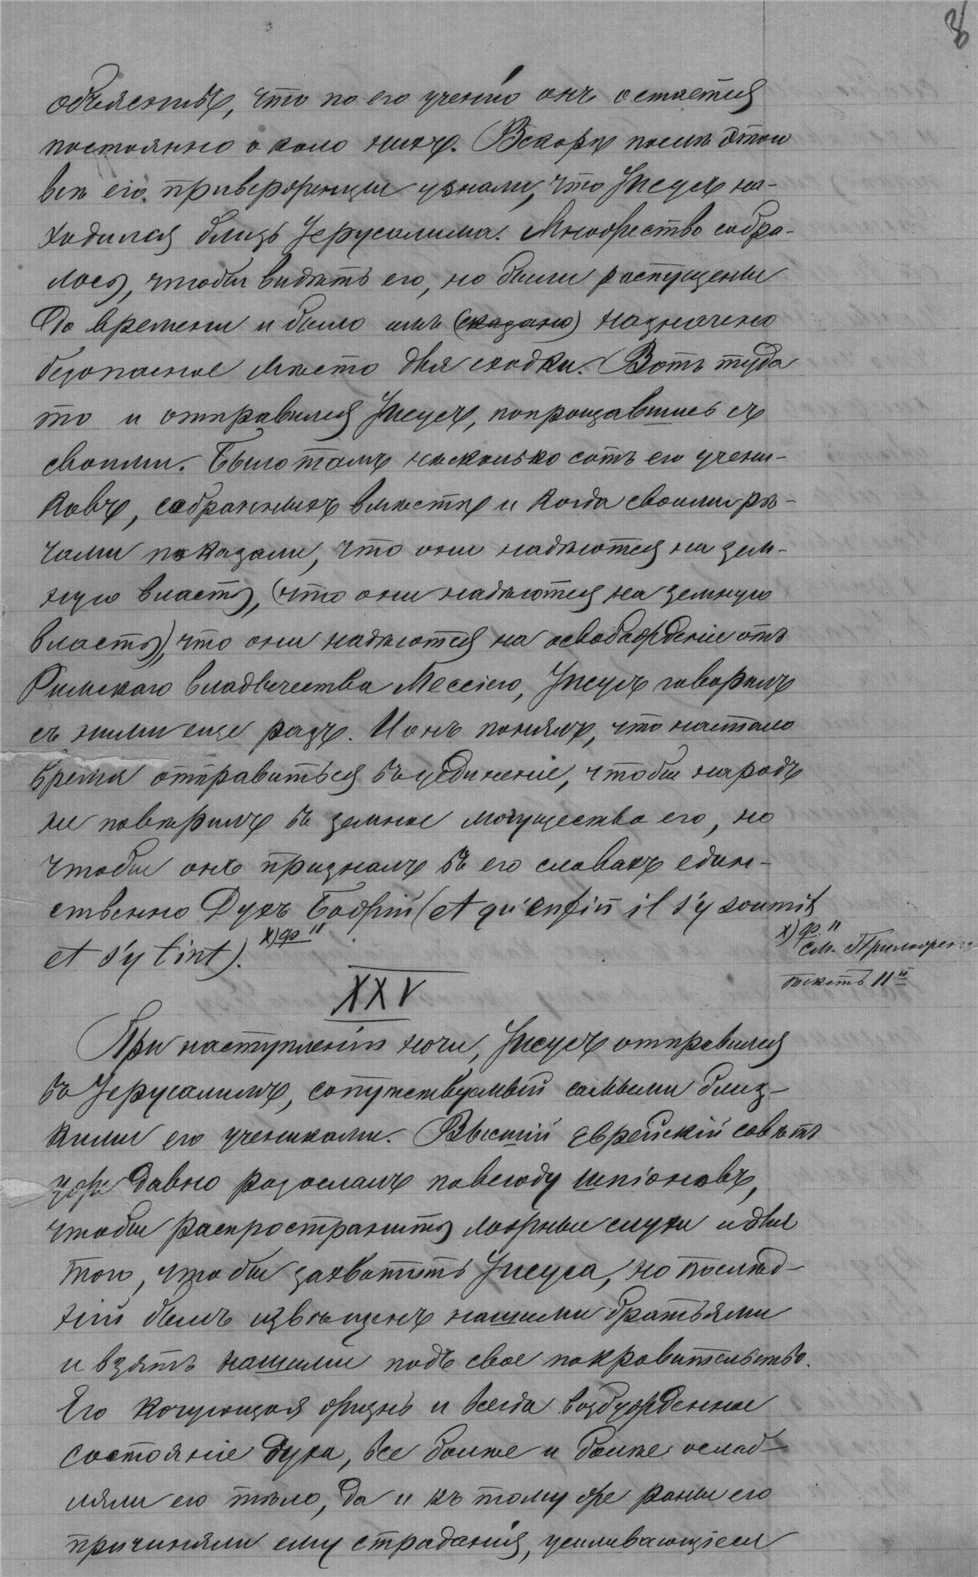 объяснивъ, что по его ученію онъ остается
постоянно около нихъ. Вскорѣ послѣ этого
всѣ его приверженцы узнали, что Іисусъ на-
ходился близь Іерусалима. Множество собра-
лось, чтобы видѣть его, но были распущены
До времени и было имъ (сказано) назначено
безопасное мѣсто для сходки. Вотъ туда
то и отправился Іисусъ, попрощавшись съ
своими. Было тамъ нѣсколько сотъ его учени-
ковъ, собранныхъ вмѣстѣ и когда своими рѣ-
чами показали, что они надѣются на зем-
ную власть, (что они надѣются на земную
власть), что они надѣются на освобожденіе отъ
Римскаго владычества Мессіею, Іисусъ говорилъ
съ ними еще разъ. И онъ понялъ, что настало
время отправиться въ уединеніе, чтобы народъ
не повѣрилъ въ земное могущество его, но
чтобы онъ призналъ въ его словахъ един-
ственно Духъ Божій (et qu'enfin il s'y soumis
et s'y tint). х) ф 11
х) ф 11
См. Примѣ
текстъ 11
XXV
При наступленіи ночи, Іисусъ отправился
въ Іерусалимъ, сопутствуемый самыми близ-
кими его учениками. Высшій Еврейскій совѣтъ
уже давно разослалъ повсюду шпіоновъ,
чтобы распространить ложные слухи и для
того, чтобы захватить Іисуса, но послѣд-
ній былъ извѣщенъ нашими братьями
и взятъ нашими подъ свое покровительство.
Его кочующая жизнь и всегда возбужденное
состояніе духа, все болѣе и болѣе ослаб-
ляли его тѣло, да и къ тому же раны его
причиняли ему страданія, усиливающіеся